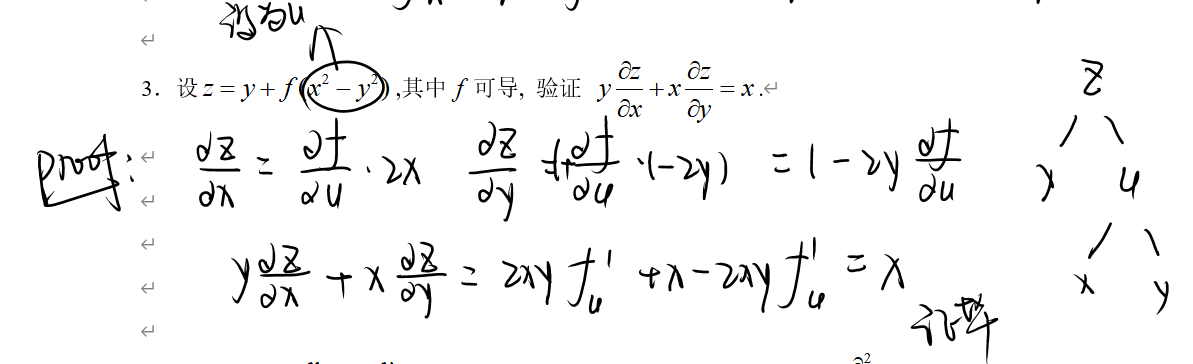 设为u
3. 设 z = y + f(x² − y²) ,其中 f 可导, 验证 y ∂z/∂x + x ∂z/∂y = x .
z
proof: ∂z/∂x = ∂f/∂u · 2x ∂z/∂y = 1+ ∂f/∂u · (−2y) = 1 − 2y ∂f/∂u
y u
y ∂z/∂x + x ∂z/∂y = 2xy f'u + x − 2xy f'u = x
x y
证毕